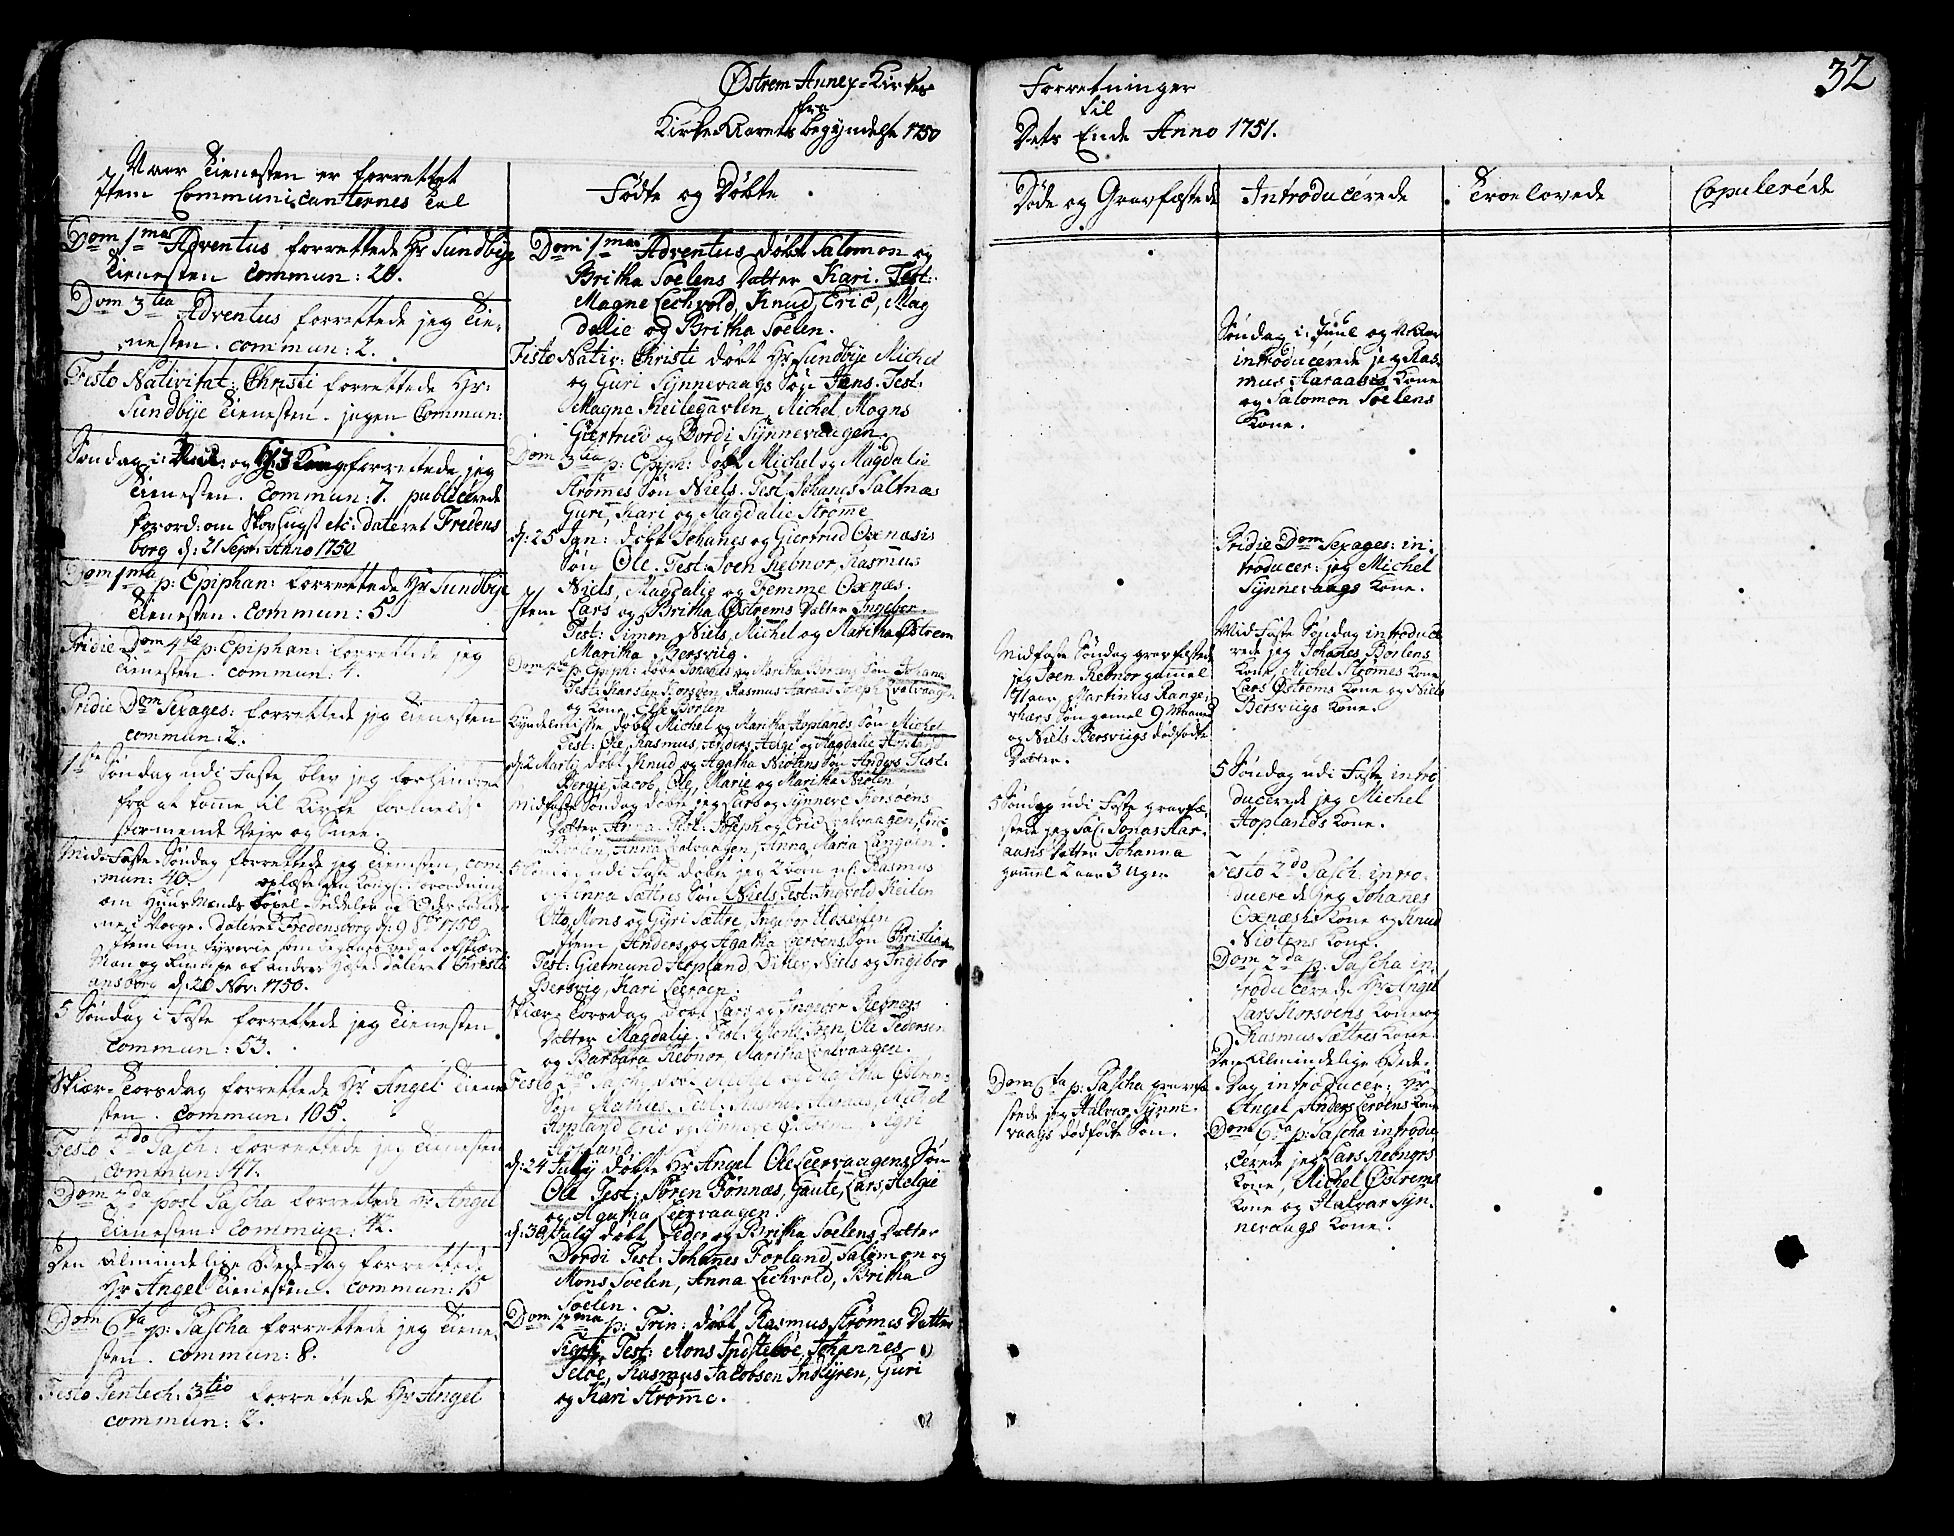 Østrem Annex-Kirkes
fra
Kirke-Aarets begyndelse 1750
Naar Tienesten er forrettet
Item Communicanternes Tal
Dom 1ma Adventus forrettede Hr Sundbye
Tienesten commun: 20.
Dom 3tia Adventus forrettede jeg Tie-
nesten. commun: 2.
Festo Nativitat: Christi forrettede Hr:
Sundbye Tienesten. jngen Commun:
Søndag i: og H: 3 Kong: forrettede jeg
Tienesten. commun: 7. publicerede
forord: om Skovhugst etc: dateret Fredens
borg d: 21 Sept: Anno 1750
Dom 1ma p: Epiphan: forrettede Hr Sundbye
Tienesten. commun: 5.
Pridie Dom 4ta p: Epiphan: forrettede jeg
Tienesten. commun: 4.
Pridie Dom Sexages: forrettede jeg Tienesten
commun: 2.
1ste Søndag udi Faste, blev jeg forhindret
fra at komme til Kirke formedelst
stormende Vejr og Snee.
Mid-Faste-Søndag forrettede jeg Tienesten, com
mun: 40. oplæste den Kongl: Forordning
om Huus Mends
i Norge. dateret Fredensborg d: 9 8br 1750
Item om Tyverie som
af andres dateret Christi
ansborg d: 20 Nov: 1750.
5 Søndag i Faste forrettede jeg Tienesten
Commun: 53.
Skiær-Torsdag forrettede Hr Angel Tiene
sten. commun: 105.
Festo 2do Pasch: forrettede jeg Tienesten
commun: 47.
Dom 2da post Pascha forrettede Hr Angel
Tienesten commun: 4.
Den Almindelige Bede-Dag forrettede
Hr Angel Tienesten. commun: 15
Dom 6ta p: Pascha forrettede jeg Tiene-
sten. commun: 8.
Festo Pentech: 3tio forrettede Hr Angel
commun: 2.
Fødte og Døbte
Dom: 1ma Adventus døbt Salomon og
Britha Soelens Datter Kari. Test:
Magne Lechvold, Knud, Eric, Mag
dalie og Britha Soelen.
Festo Nativ: Christi døbt Hr Sundbye Michel
og Guri Synnevaags Søn Jens. Test:
Magne Keilegavlen, Michel Mogns
Giertrud og Dordi Synnevaagen.
Dom 3tia p: Epiph: døbt Michel og Magdalie
Strømes Søn Niels. Test: Johanes Saltnæs
Guri, Kari og Magdalie Strøme
d: 25 Jan: døbt Johanes og Giertrud Oxnæsis
Søn Ole. Test: Joen Rebnor, Rasmus
Niels, Magdalie og Femme Oxnæs.
Item Lars og Britha Østrems Datter Ingebor.
Test: Simon, Niels, Michel og Maritha Østrem
Maritha Bersviig.
Dom 4ta p: Epiph: døbt Johanes og Maritha Børlens Søn Johanes
Test: Karsten Korsøen, Rasmus Aaraas, Joseph Qvalvaagen
og Kone, Else Børlen
Kyndelmisse døbt Michel og Maritha Hoplands Søn Michel
Test: Ole, Rasmus, Anders, Helge og Magdalie Hopland
d: 2 Martij døbt Knud og Agatha Niøtens Søn Anders Test:
Børgie, Jacob, Ole, Marie og Maritha Niøten
Midfaste Søndag døbte jeg Lars og Synneve Korsøens
Datter Anna. Test: Joseph og Eric Qvalvaagen,
Anna Qvalvaagen, Anna Maria Langøen.
5 Søndag udi Faste døbte jeg 2 børn nl: Rasmus
og Anna Sætres Søn Niels Test: Ingvold Keilen
Otto, Mons og Guri Sætre, Ingebor
Item Anders og Agatha Leerøens Søn Christian
Test: Giermund Hopland, Ditler, Niels og Ingebor
Bersvig, Kari Leerøen.
Skiær-Torsdag døbt Lars og Ingebor Rebnors
Datter Magdalie. Test: Ole Pedersen
og Barbara Rebnor, Maritha Qvalvaagen.
Festo 2do Pasch: døbt Michel og Østrems
Søn Mathies. Test: Rasmus Michel
Hopland Eric og Synneve Østrem. Sigri
Hopland.
d: 24 July døbte Hr Angel Ole Leervaagens Søn
Ole Test: Søren Fønnæs, Gaute, Lars, Helgie
og Agatha Leervaagen.
d: 30 July døbt Peder og Britha Soelens Datter
Dordi Test: Johanes Forland, Salomon og
Mons Soelen, Anna Lechvold, Britha
Soelen.
Dom 12ma p: Trin: døbt Rasmus Strømes Datter
Test: Mons Indstebøe, Johannes
Teløe, Rasmus Jacobsen Indtyren, Guri
og Kari Strømme.
32
Forretninger
til
Dets Ende Anno 1751.
Døde og Gravfæstede
Midfaste Søndag gravfæstede
jeg Joen Rebnor gammel
Aar, Martinus Range-
vhærs Søn gamel 9 Maaned
og Niels Bersviigs dødfødte
Datter.
5 Søndag udi Faste gravfæ-
stede jeg Sal: Jonas Aar-
aasis Datter Johanna
gammel 2 aar 3 Uger
Dom 6ta p: Pascha gravfæ
stede jeg Halvar Synne-
vaags dødfødte Søn.
Introducerede
Søndag i: Juul og Nytaar
introducerede jeg Ras-
mus Aaraases Kone
og Salomon Soelens
Kone.
Pridie Dom Sexages: in-
troducer: jeg Michel
Synnevaags Kone.
Mid Faste Søndag introduce
rede jeg Johanes Børlens
Kone, Michel Strømes Kone
Lars Østrems Kone og Niels
Bersviigs Kone.
5 Søndag udi Faste intro
ducerede jeg Michel
Hoplands Kone.
Festo 2do Pasch: intro-
ducerede jeg Johanes
Oxnæsis Kone og Knud
Niøtens Kone.
Dom 2da p: Pascha in-
troducerede Hr Angel
Lars Korsøens Kone og
Rasmus Sættres Kone
Den Almindelige Bede-
Dag introducer: Hr
Angel Anders Lerøens Kone
Dom 6ta p: Pascha introdu
cerede jeg Lars Rebnors
Kone, Michel Østrems
Kone og Halvar Syn-
nevaags Kone.
Troelovede
Copulerede